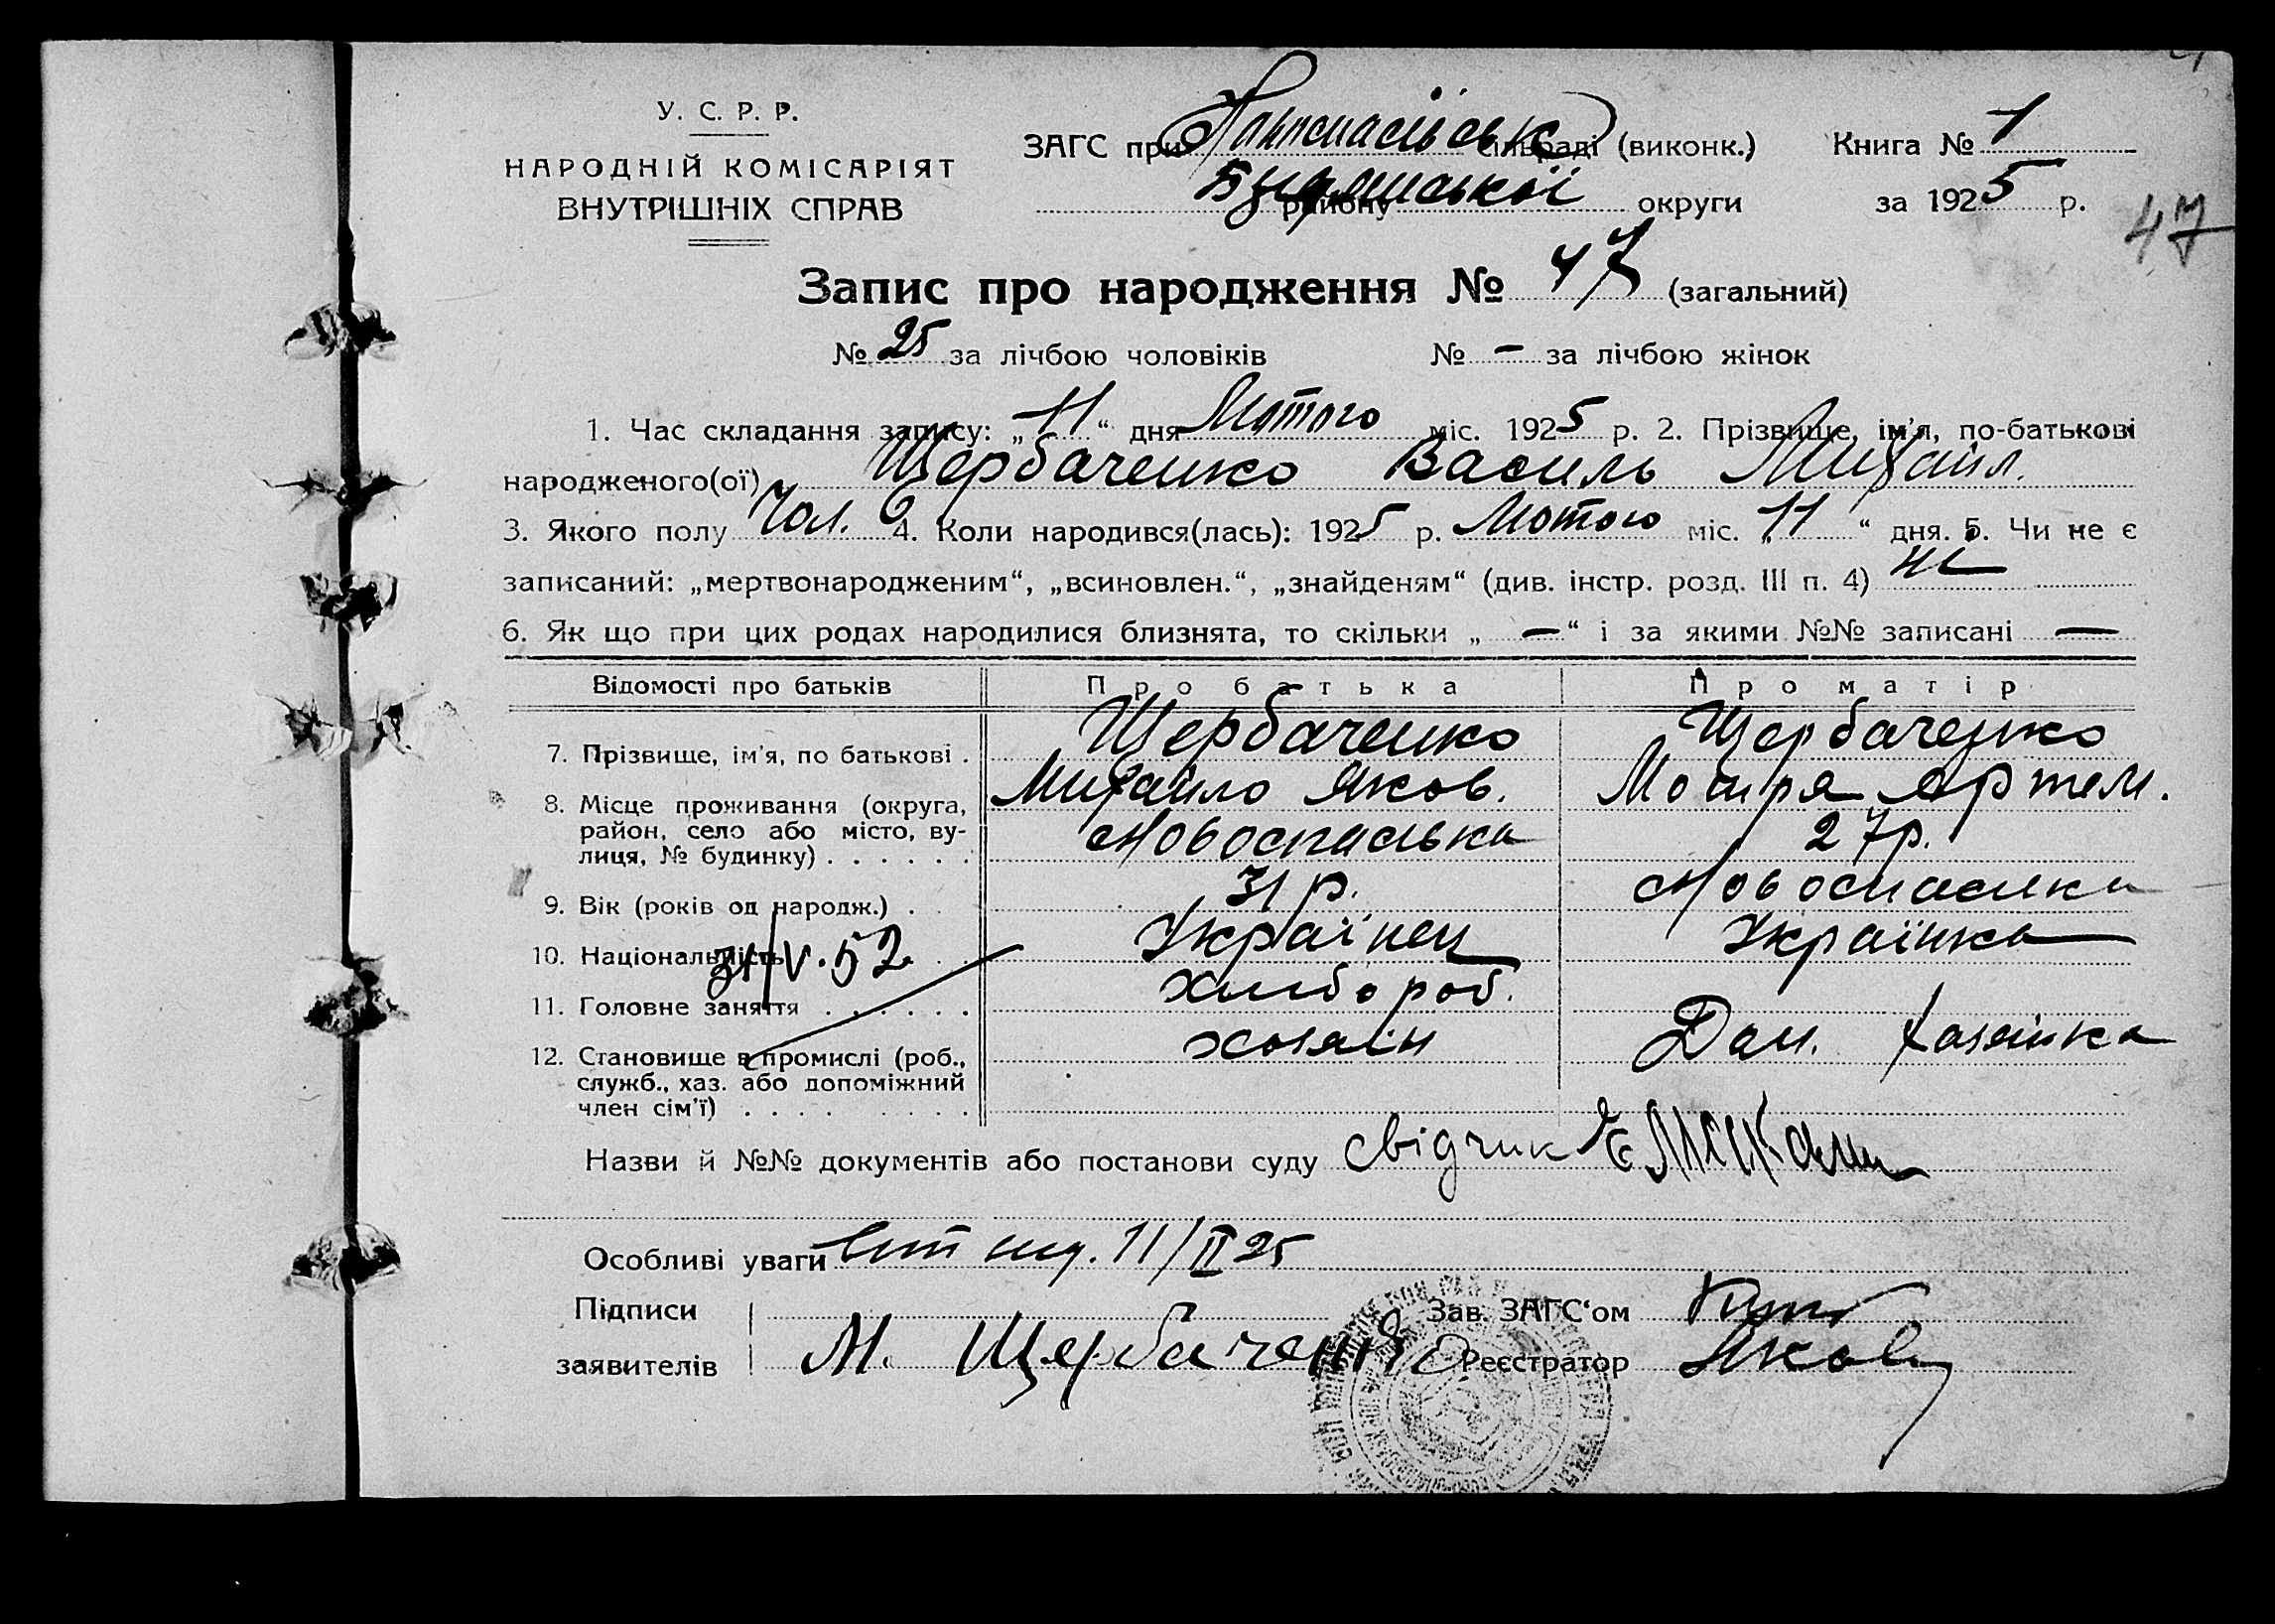 У. С. Р. Р.
НАРОДНІЙ КОМІСАРІЯТ
ВНУТРІШНІХ СПРАВ
ЗАГС при сільраді (виконк.) Книга № 1
району округи за 1925 р.
47
Запис про народження № 47 (загальний)
№ 25 за лічбою чоловіків № — за лічбою жінок
1. Час складання запису: „11“ дня Лютого міс. 1925 р. 2. Прізвище, ім'я, по-батькові
народженого(ої) Щербаченко Василь Михайл.
3. Якого полу Чол. 4. Коли народився(лась): 1925 р. Лютого міс. „11“ дня. 5. Чи не є
записаний: „мертвонародженим“, „всиновлен.“, „знайденям“ (див. інстр. розд. III п. 4) не
6. Як що при цих родах народилися близнята, то скільки „—“ і за якими №№ записані —
Відомості про батьків Про батька Про матір
7. Прізвище, ім'я, по батькові . Щербаченко Щербаченко
Михайло Яков. Мотря Артем.
8. Місце проживання (округа,
район, село або місто, ву-
лиця, № будинку) . . . . . . Новоспаська 27р.
9. Вік (років од народж.) . . 31 р. Новоспаська
10. Національність Українец Українка
31/V.52
11. Головне заняття . . . . . . Хлібороб.
12. Становище в промислі (роб.,
служб., хаз. або допоміжний
член сім'ї) . . . . хозяін Дом. хазяінка
Назви й №№ документів або постанови суду свідчик
Особливі уваги 11/II 25
Підписи Зав. ЗАГС‘ом
заявителів М. Щербаченко Реєстратор